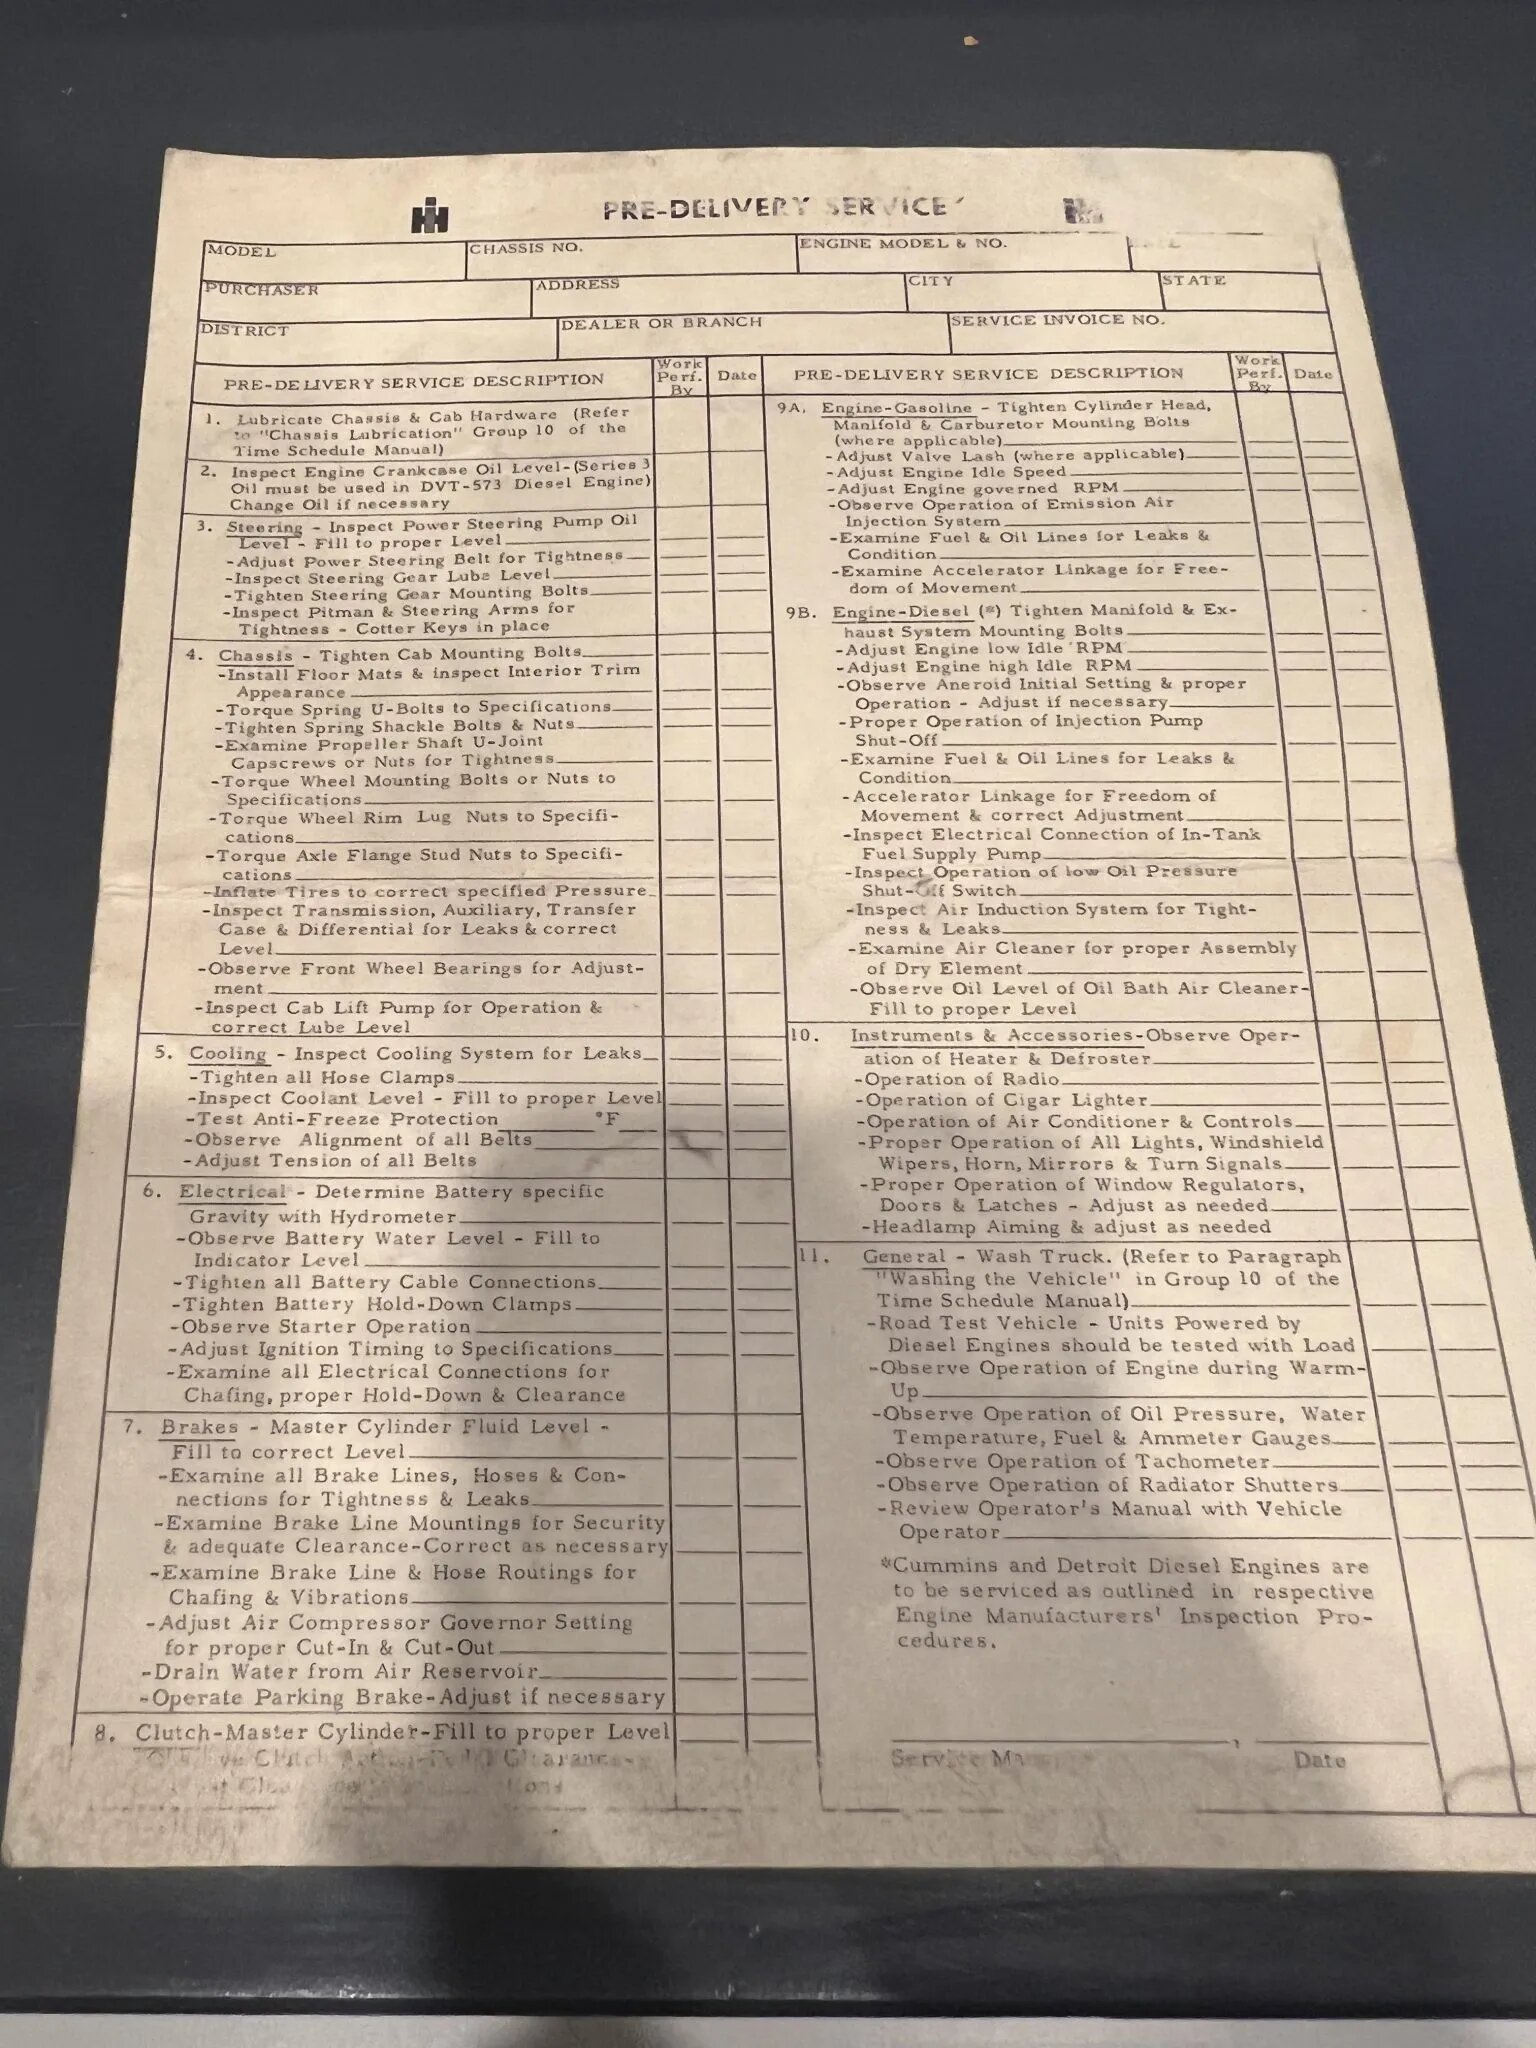 IH PRE-DELIVERY SERVICE
MODEL CHASSIS NO. ENGINE MODEL & NO.
PURCHASER ADDRESS CITY STATE
DISTRICT DEALER OR BRANCH SERVICE INVOICE NO.
PRE-DELIVERY SERVICE DESCRIPTION Work Perf. By Date
1. Lubricate Chassis & Cab Hardware (Refer
to "Chassis Lubrication" Group 10 of the
Time Schedule Manual)
2. Inspect Engine Crankcase Oil Level-(Series 3
Oil must be used in DVT-573 Diesel Engine)
Change Oil if necessary
3. Steering - Inspect Power Steering Pump Oil
Level - Fill to proper Level
-Adjust Power Steering Belt for Tightness
-Inspect Steering Gear Lube Level
-Tighten Steering Gear Mounting Bolts
-Inspect Pitman & Steering Arms for
Tightness - Cotter Keys in place
4. Chassis - Tighten Cab Mounting Bolts
-Install Floor Mats & inspect Interior Trim
Appearance
-Torque Spring U-Bolts to Specifications
-Tighten Spring Shackle Bolts & Nuts
-Examine Propeller Shaft U-Joint
Capscrews or Nuts for Tightness
-Torque Wheel Mounting Bolts or Nuts to
Specifications
-Torque Wheel Rim Lug Nuts to Specifi-
cations
-Torque Axle Flange Stud Nuts to Specifi-
cations
-Inflate Tires to correct specified Pressure
-Inspect Transmission, Auxiliary, Transfer
Case & Differential for Leaks & correct
Level
-Observe Front Wheel Bearings for Adjust-
ment
-Inspect Cab Lift Pump for Operation &
correct Lube Level
5. Cooling - Inspect Cooling System for Leaks
-Tighten all Hose Clamps
-Inspect Coolant Level - Fill to proper Level
-Test Anti-Freeze Protection °F
-Observe Alignment of all Belts
-Adjust Tension of all Belts
6. Electrical - Determine Battery specific
Gravity with Hydrometer
-Observe Battery Water Level - Fill to
Indicator Level
-Tighten all Battery Cable Connections
-Tighten Battery Hold-Down Clamps
-Observe Starter Operation
-Adjust Ignition Timing to Specifications
-Examine all Electrical Connections for
Chafing, proper Hold-Down & Clearance
7. Brakes - Master Cylinder Fluid Level -
Fill to correct Level
-Examine all Brake Lines, Hoses & Con-
nections for Tightness & Leaks
-Examine Brake Line Mountings for Security
& adequate Clearance-Correct as necessary
-Examine Brake Line & Hose Routings for
Chafing & Vibrations
-Adjust Air Compressor Governor Setting
for proper Cut-In & Cut-Out
-Drain Water from Air Reservoir
-Operate Parking Brake-Adjust if necessary
8. Clutch-Master Cylinder-Fill to proper Level
Clutch Clearance-
PRE-DELIVERY SERVICE DESCRIPTION Work Perf. By Date
9A. Engine-Gasoline - Tighten Cylinder Head,
Manifold & Carburetor Mounting Bolts
(where applicable)
-Adjust Valve Lash (where applicable)
-Adjust Engine Idle Speed
-Adjust Engine governed RPM
-Observe Operation of Emission Air
Injection System
-Examine Fuel & Oil Lines for Leaks &
Condition
-Examine Accelerator Linkage for Free-
dom of Movement
9B. Engine-Diesel (*) Tighten Manifold & Ex-
haust System Mounting Bolts
-Adjust Engine low Idle RPM
-Adjust Engine high Idle RPM
-Observe Aneroid Initial Setting & proper
Operation - Adjust if necessary
-Proper Operation of Injection Pump
Shut-Off
-Examine Fuel & Oil Lines for Leaks &
Condition
-Accelerator Linkage for Freedom of
Movement & correct Adjustment
-Inspect Electrical Connection of In-Tank
Fuel Supply Pump
-Inspect Operation of low Oil Pressure
Shut-Off Switch
-Inspect Air Induction System for Tight-
ness & Leaks
-Examine Air Cleaner for proper Assembly
of Dry Element
-Observe Oil Level of Oil Bath Air Cleaner-
Fill to proper Level
10. Instruments & Accessories-Observe Oper-
ation of Heater & Defroster
-Operation of Radio
-Operation of Cigar Lighter
-Operation of Air Conditioner & Controls
-Proper Operation of All Lights, Windshield
Wipers, Horn, Mirrors & Turn Signals
-Proper Operation of Window Regulators,
Doors & Latches - Adjust as needed
-Headlamp Aiming & adjust as needed
11. General - Wash Truck. (Refer to Paragraph
"Washing the Vehicle" in Group 10 of the
Time Schedule Manual)
-Road Test Vehicle - Units Powered by
Diesel Engines should be tested with Load
-Observe Operation of Engine during Warm-
Up
-Observe Operation of Oil Pressure, Water
Temperature, Fuel & Ammeter Gauges
-Observe Operation of Tachometer
-Observe Operation of Radiator Shutters
-Review Operator's Manual with Vehicle
Operator
*Cummins and Detroit Diesel Engines are
to be serviced as outlined in respective
Engine Manufacturers' Inspection Pro-
cedures.
Service Date